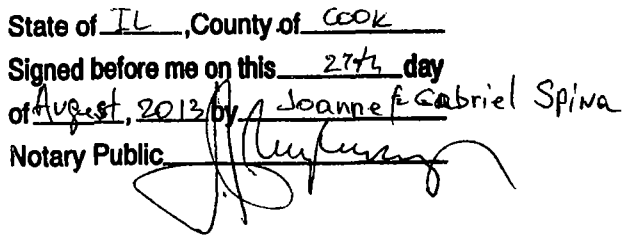 State of IL, County of COOK
Signed before me on this 27th day
of August, 2013 by Joanne & Gabriel Spina
Notary Public